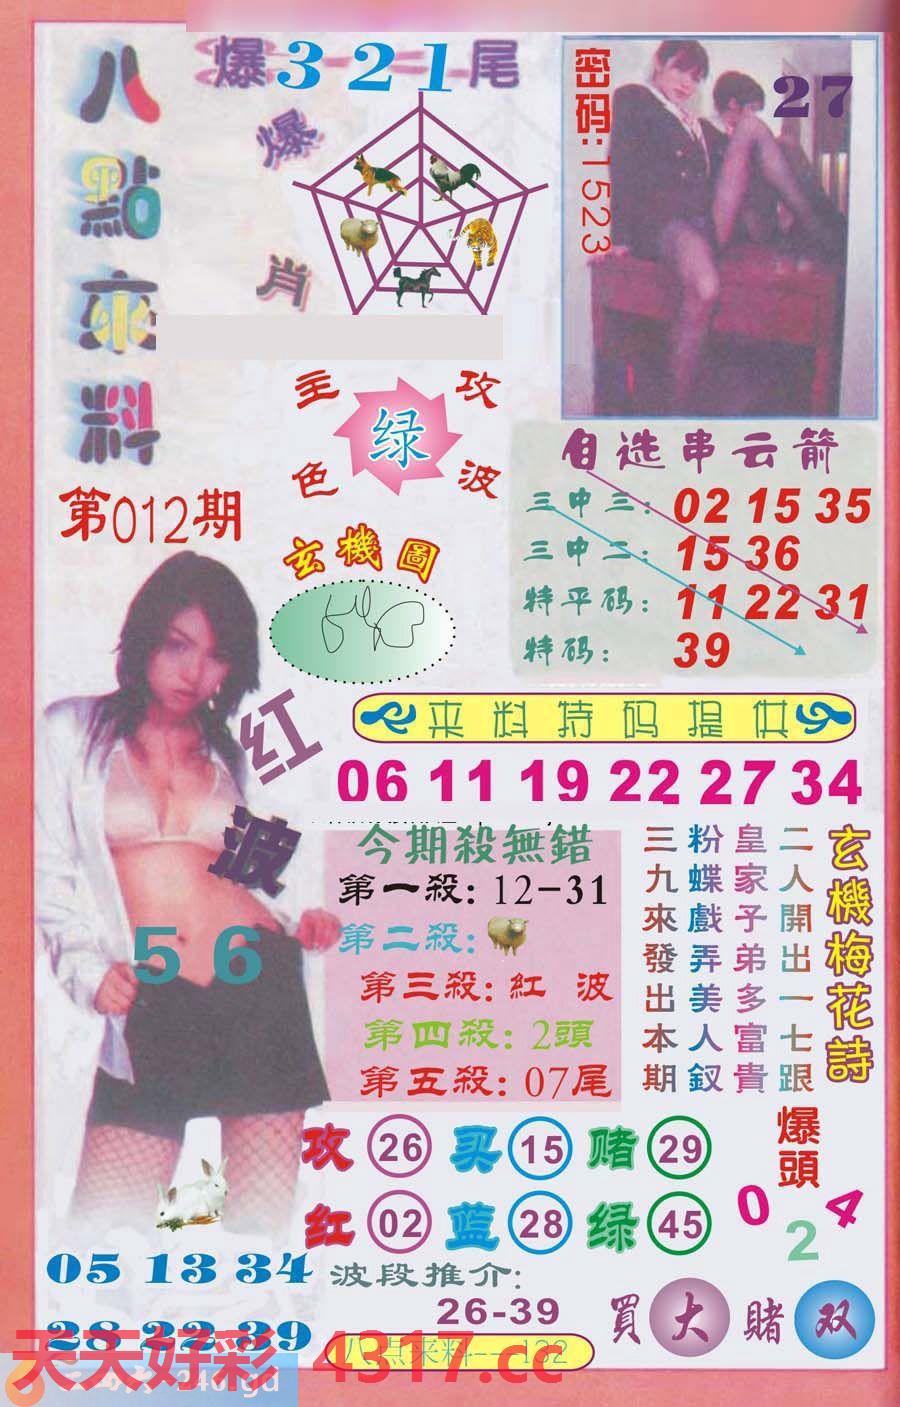 八點來料
爆321尾
爆肖
密码:1523
27
主攻
绿
色波
第012期
玄機圖
自选串云箭
三中三: 02 15 35
三中二: 15 36
特平码: 11 22 31
特码: 39
来料特码提供
06 11 19 22 27 34
红波
56
今期殺無錯
第一殺: 12-31
第二殺:
第三殺: 紅 波
第四殺: 2頭
第五殺: 07尾
玄機梅花詩
二人開出一七跟
皇家子弟多富貴
粉蝶戲弄美人釵
三九來發出本期
攻 26 买 15 赌 29
红 02 蓝 28 绿 45
爆頭
0 2 4
05 13 34
28 22 39
波段推介:
26-39
買大賭双
八点来料---132
天天好彩 4317.cc